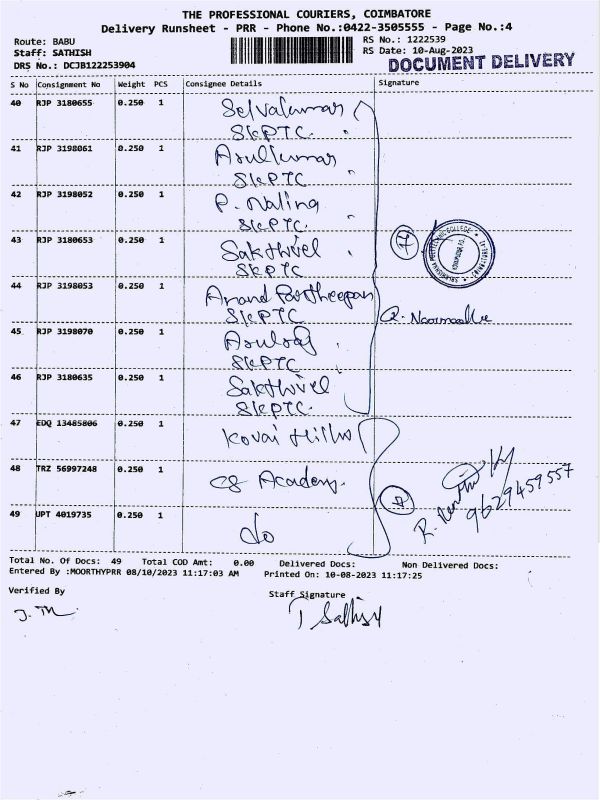 THE PROFESSIONAL COURIERS, COIMBATORE
Delivery Runsheet - PRR - Phone No.:0422-3505555 - Page No.:4
Route: BABU
Staff: SATHISH
DRS No.: DCJB122253904
RS No.: 1222539
RS Date: 10-Aug-2023
DOCUMENT DELIVERY
S No Consignment No Weight PCS Consignee Details Signature
40 RJP 3180655 0.250 1 Selvakumar
SKPTC.
41 RJP 3198061 0.250 1 Arulkumar
SKPTC
42 RJP 3198052 0.250 1 P. Nalina
SKPTC.
43 RJP 3180653 0.250 1 Sakthivel
SKPTC
7
44 RJP 3198053 0.250 1 Anand Partheepan
SKPTC
45 RJP 3198070 0.250 1 Arulraj
SKPTC
46 RJP 3180635 0.250 1 Sakthivel
SKPTC.
47 EDQ 13485806 0.250 1 Kovai Hills
48 TRZ 56997248 0.250 1 CS Academy.
9629459557
49 UPT 4019735 0.250 1 do
Total No. Of Docs: 49 Total COD Amt: 0.00 Delivered Docs: Non Delivered Docs:
Entered By :MOORTHYPRR 08/10/2023 11:17:03 AM Printed On: 10-08-2023 11:17:25
Verified By Staff Signature
T Sathish